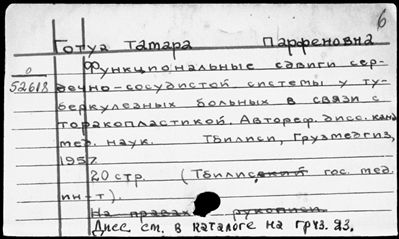 6
Готуа Тамара Парфеновна
0
52618
Функциональные сдвиги сер-
дечно-сосудистой системы у ту-
беркулезных больных в связи с
торакопластикой. Автореф. дисс. канд.
мед. наук. Тбилиси, Грузмедгиз,
1957
20 стр. (Тбилисский гос. мед.
ин-т).
На правах рукописи.
Дисс. см. в каталоге на груз. яз.